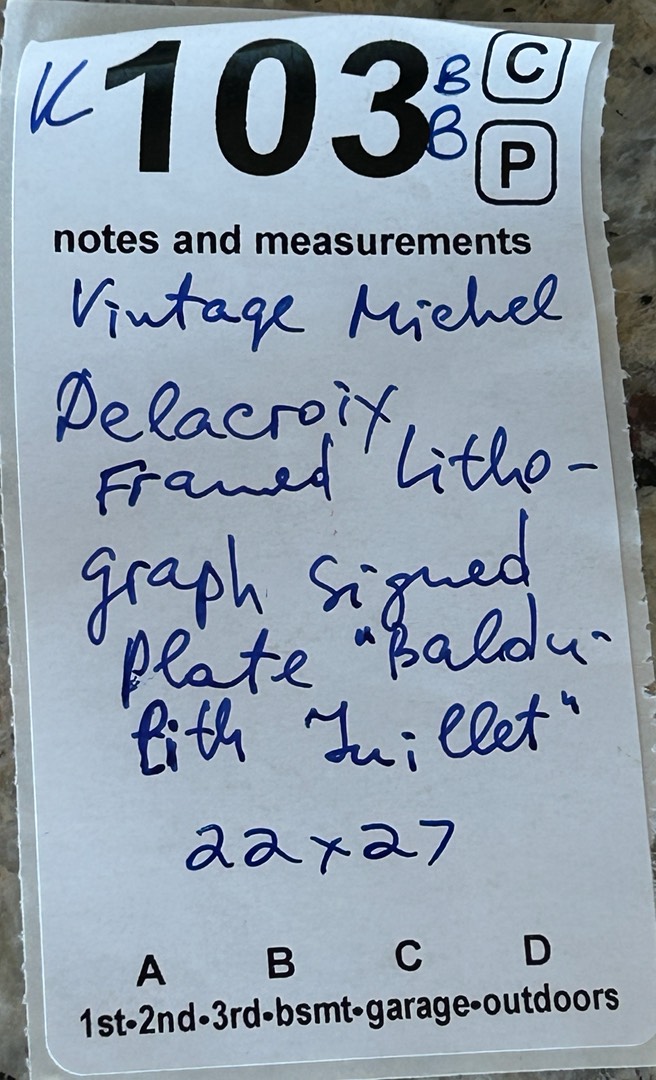 K 103 B C
B P
notes and measurements
Vintage Michel
Delacroix
Framed Litho-
graph signed
plate "Baldu-
fith Juillet"
22x27
A B C D
1st•2nd•3rd•bsmt•garage•outdoors